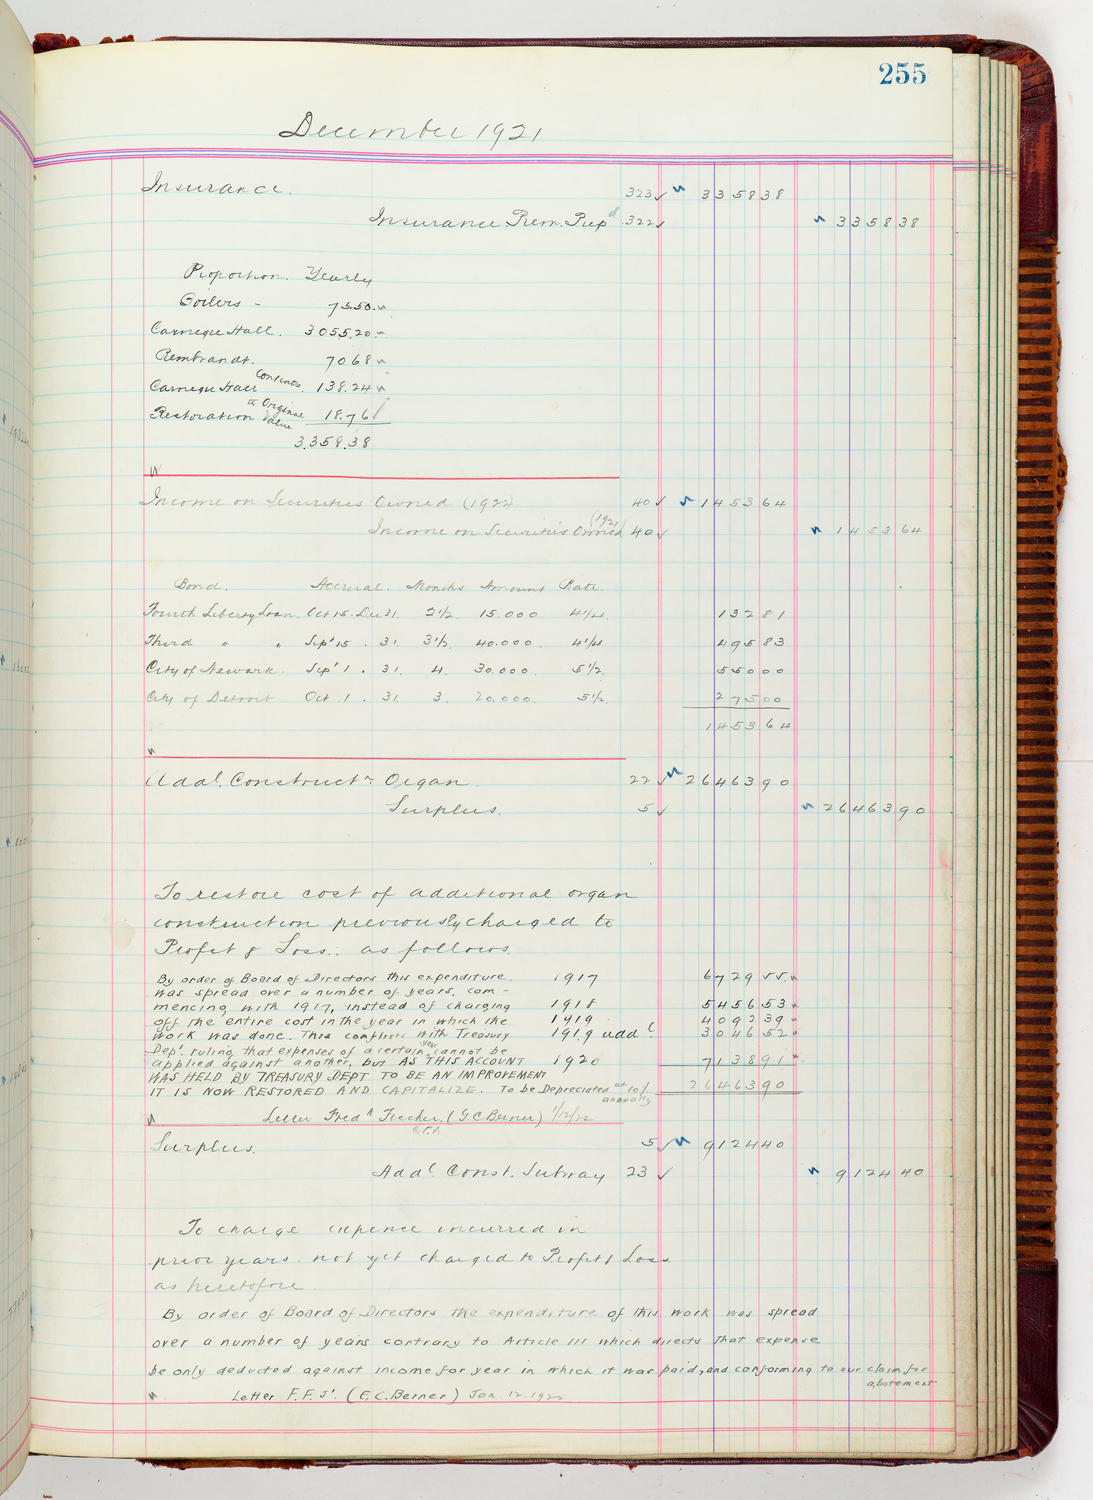 255
December 1921
Insurance. 323 3358 38
Insurance Prem. Prepd 322 3358 38
Proportion. Yearly
Boilers - 75.50
Carnegie Hall. 3055.20
Rembrandt. 70 68
Carnegie Hall Contents. 138.24
Restoration to Original Value 18.76
3,358.38
Income on Securities Owned (1922) 40 1453 64
Income on Securities Owned (1921) 40 1453 64
Bond. Accrual. Months Amount Rate.
Fourth Liberty Loan. Oct 15. Dec 31. 2 1/2 15.000 4 1/4. 132 81
Third " " Sept 15 . 31. 3 1/2. 40.000. 4 1/4 495 83
City of Newark. Sept 1 . 31. 4. 30.000. 5 1/2. 550 00
City of Detroit Oct. 1 . 31. 3. 20.000. 5 1/2. 275 00
1453 64
Addl. Constructn. Organ. 22 26463 90
Surplus. 5 26463 90
To restore cost of additional organ
construction previously charged to
Profit & Loss.. as follows.
By order of Board of Directors this expenditure. 1917 6729 55
was spread over a number of years, com-
mencing with 1917, instead of charging 1918 5456 53
off the entire cost in the year in which the 1919 4092 39
work was done. This conflicts with Treasury 1919 addl. 3046 52
Dept. ruling that expenses of a certain year cannot be
applied against another, but AS THIS ACCOUNT 1920 7138 91
WAS HELD BY TREASURY DEPT TO BE AN IMPROVEMENT
IT IS NOW RESTORED AND CAPITALIZE. To be Depreciated at 10% annually 26463 90
Letter Fred k Fischer. (G.C Berner) 1/12/22
C.P.A
Surplus. 5 9124 40
Addl. Const. Subway 23 9124 40
To charge expence incurred in
prior years. not yet charged to Profit & Loss
as heretofore
By order of Board of Directors the expenditure of this work was spread
over a number of years contrary to Article 111 which directs that expense
be only deducted against income for year in which it was paid, and conforming to our claim for
abatement
Letter F. F. Jr. (E.C. Berner) Jan. 12. 1922